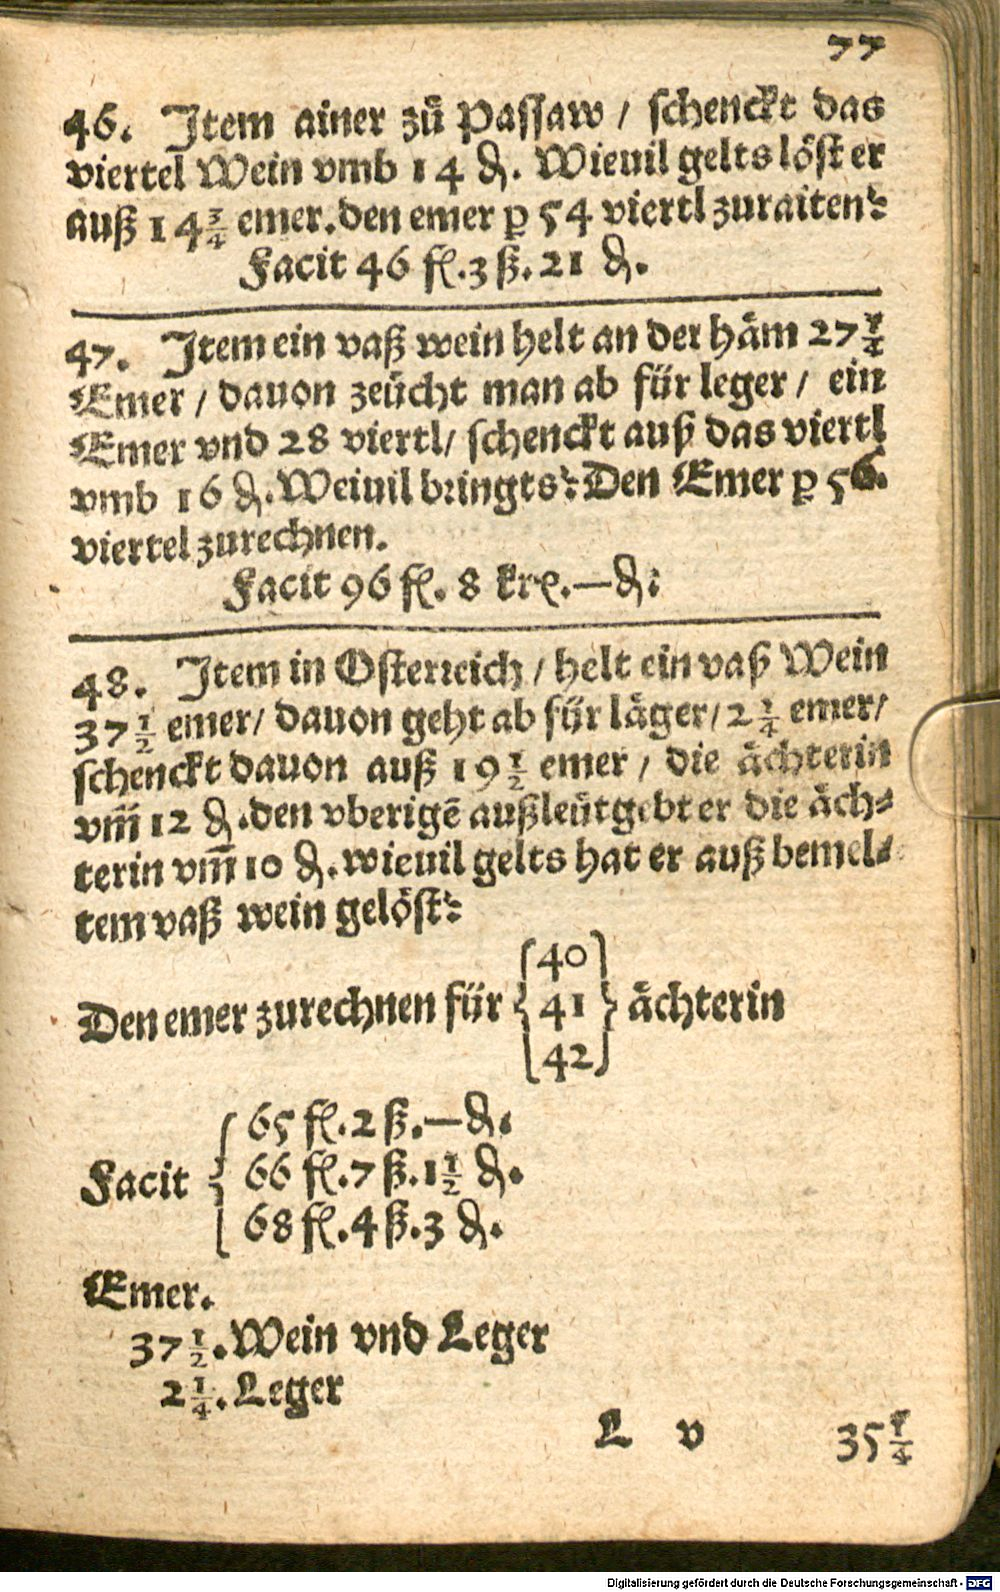 77
46. Item ainer zů Passaw / schenckt das
viertel Wein vmb 14 ₰. Wieuil gelts löst er
auß 14 3/4 emer. den emer p 54 viertl zuraiten?
Facit 46 fl. 3 ß. 21 ₰.
47. Item ein vaß wein helt an der häm 27 1/4
Emer / dauon zeücht man ab für leger / ein
Emer vnd 28 viertl / schenckt auß das viertl
vmb 16 ₰. Weiuil bringts? Den Emer p 56.
viertel zurechnen.
Facit 96 fl. 8 krꝛ. — ₰:
48. Item in Osterreich / helt ein vaß Wein
37 1/2 emer / dauon geht ab für läger / 2 1/4 emer /
schenckt dauon auß 19 1/2 emer / die ächterin
vm̃ 12 ₰. den vberigē außleütgebt er die äch-
terin vm̃ 10 ₰. wieuil gelts hat er auß bemel-
tem vaß wein gelöst?
Den emer zurechnen für { 40 41 42 } ächterin
Facit { 65 fl. 2 ß. — ₰.
66 fl. 7 ß. 1 1/2 ₰.
68 fl. 4 ß. 3 ₰.
Emer.
37 1/2. Wein vnd Leger
2 1/4. Leger
L v 35 1/4
Digitalisierung gefördert durch die Deutsche Forschungsgemeinschaft - DFG